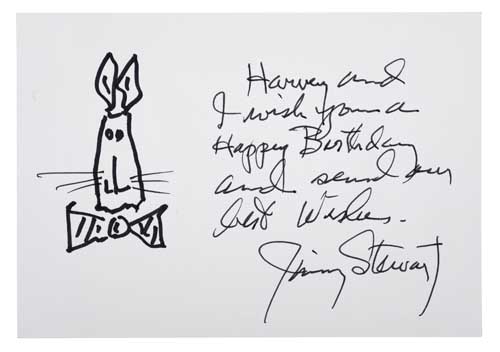 Harvey and
I wish you a
Happy Birthday
and send our
best Wishes.
Jimmy Stewart